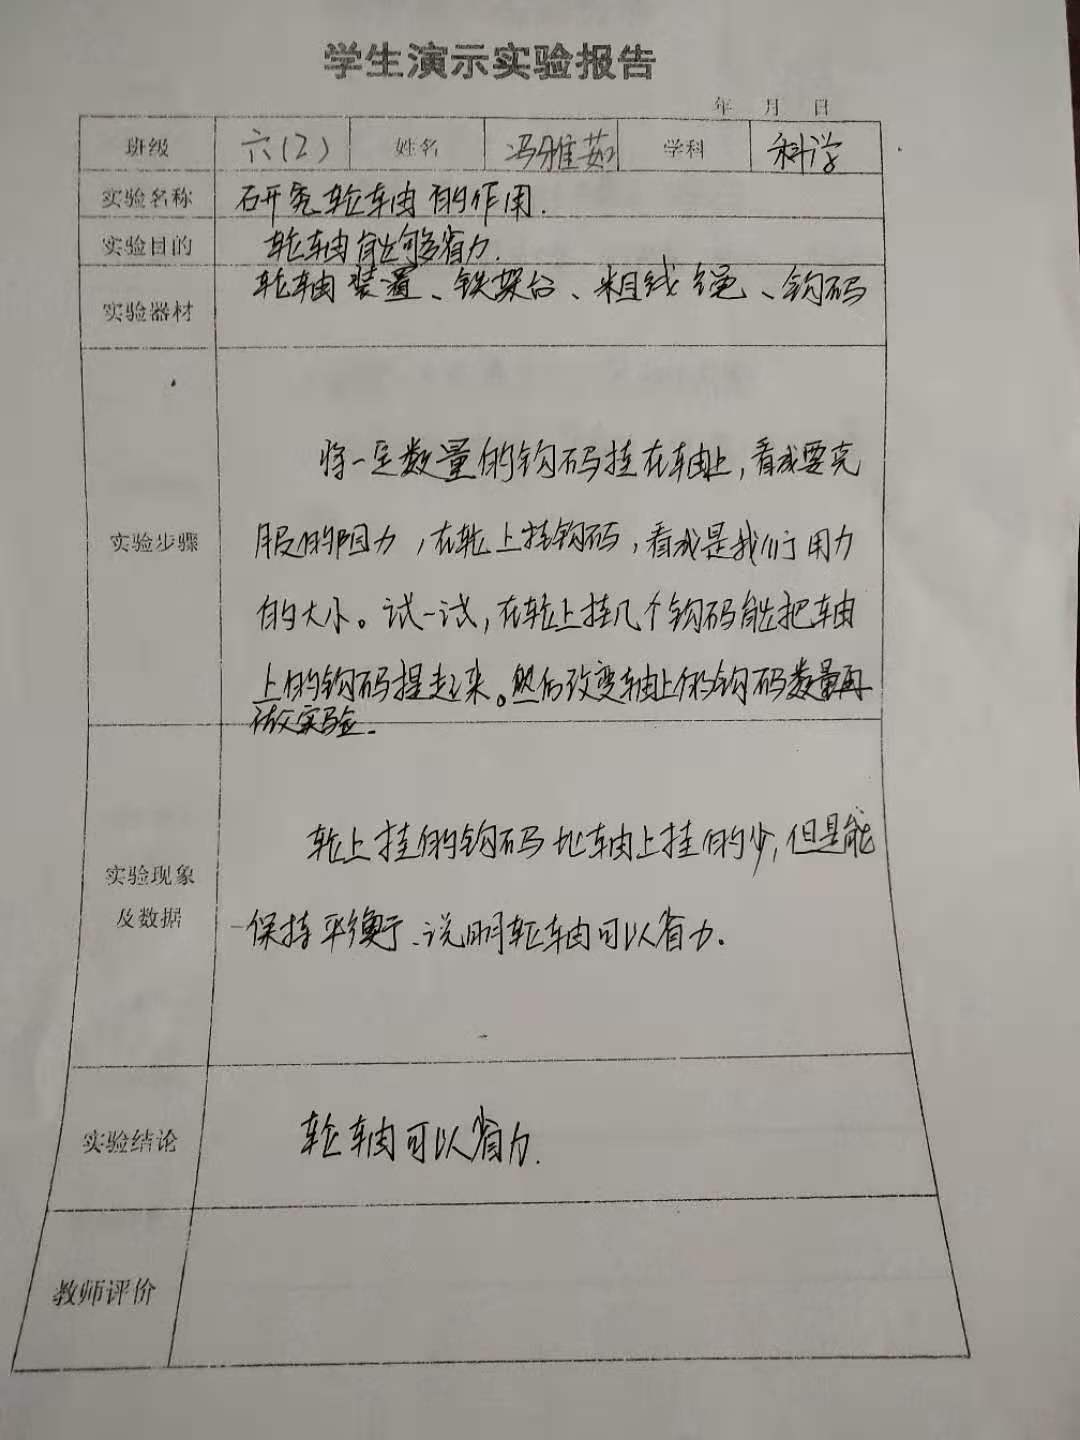 学生演示实验报告
年 月 日
班级 六(2) 姓名 冯雅茹 学科 科学
实验名称 研究轮轴的作用.
实验目的 轮轴能够省力.
实验器材 轮轴装置、铁架台、粗线绳、钩码
将一定数量的钩码挂在轴上,看成要克
实验步骤 服的阻力,在轮上挂钩码,看成是我们用力
的大小。试一试,在轮上挂几个钩码能把轴
上的钩码提起来。然后改变轴上的钩码数量再
做实验.
轮上挂的钩码比轴上挂的少,但是能
实验现象
及数据 保持平衡.说明轮轴可以省力.
实验结论 轮轴可以省力.
教师评价